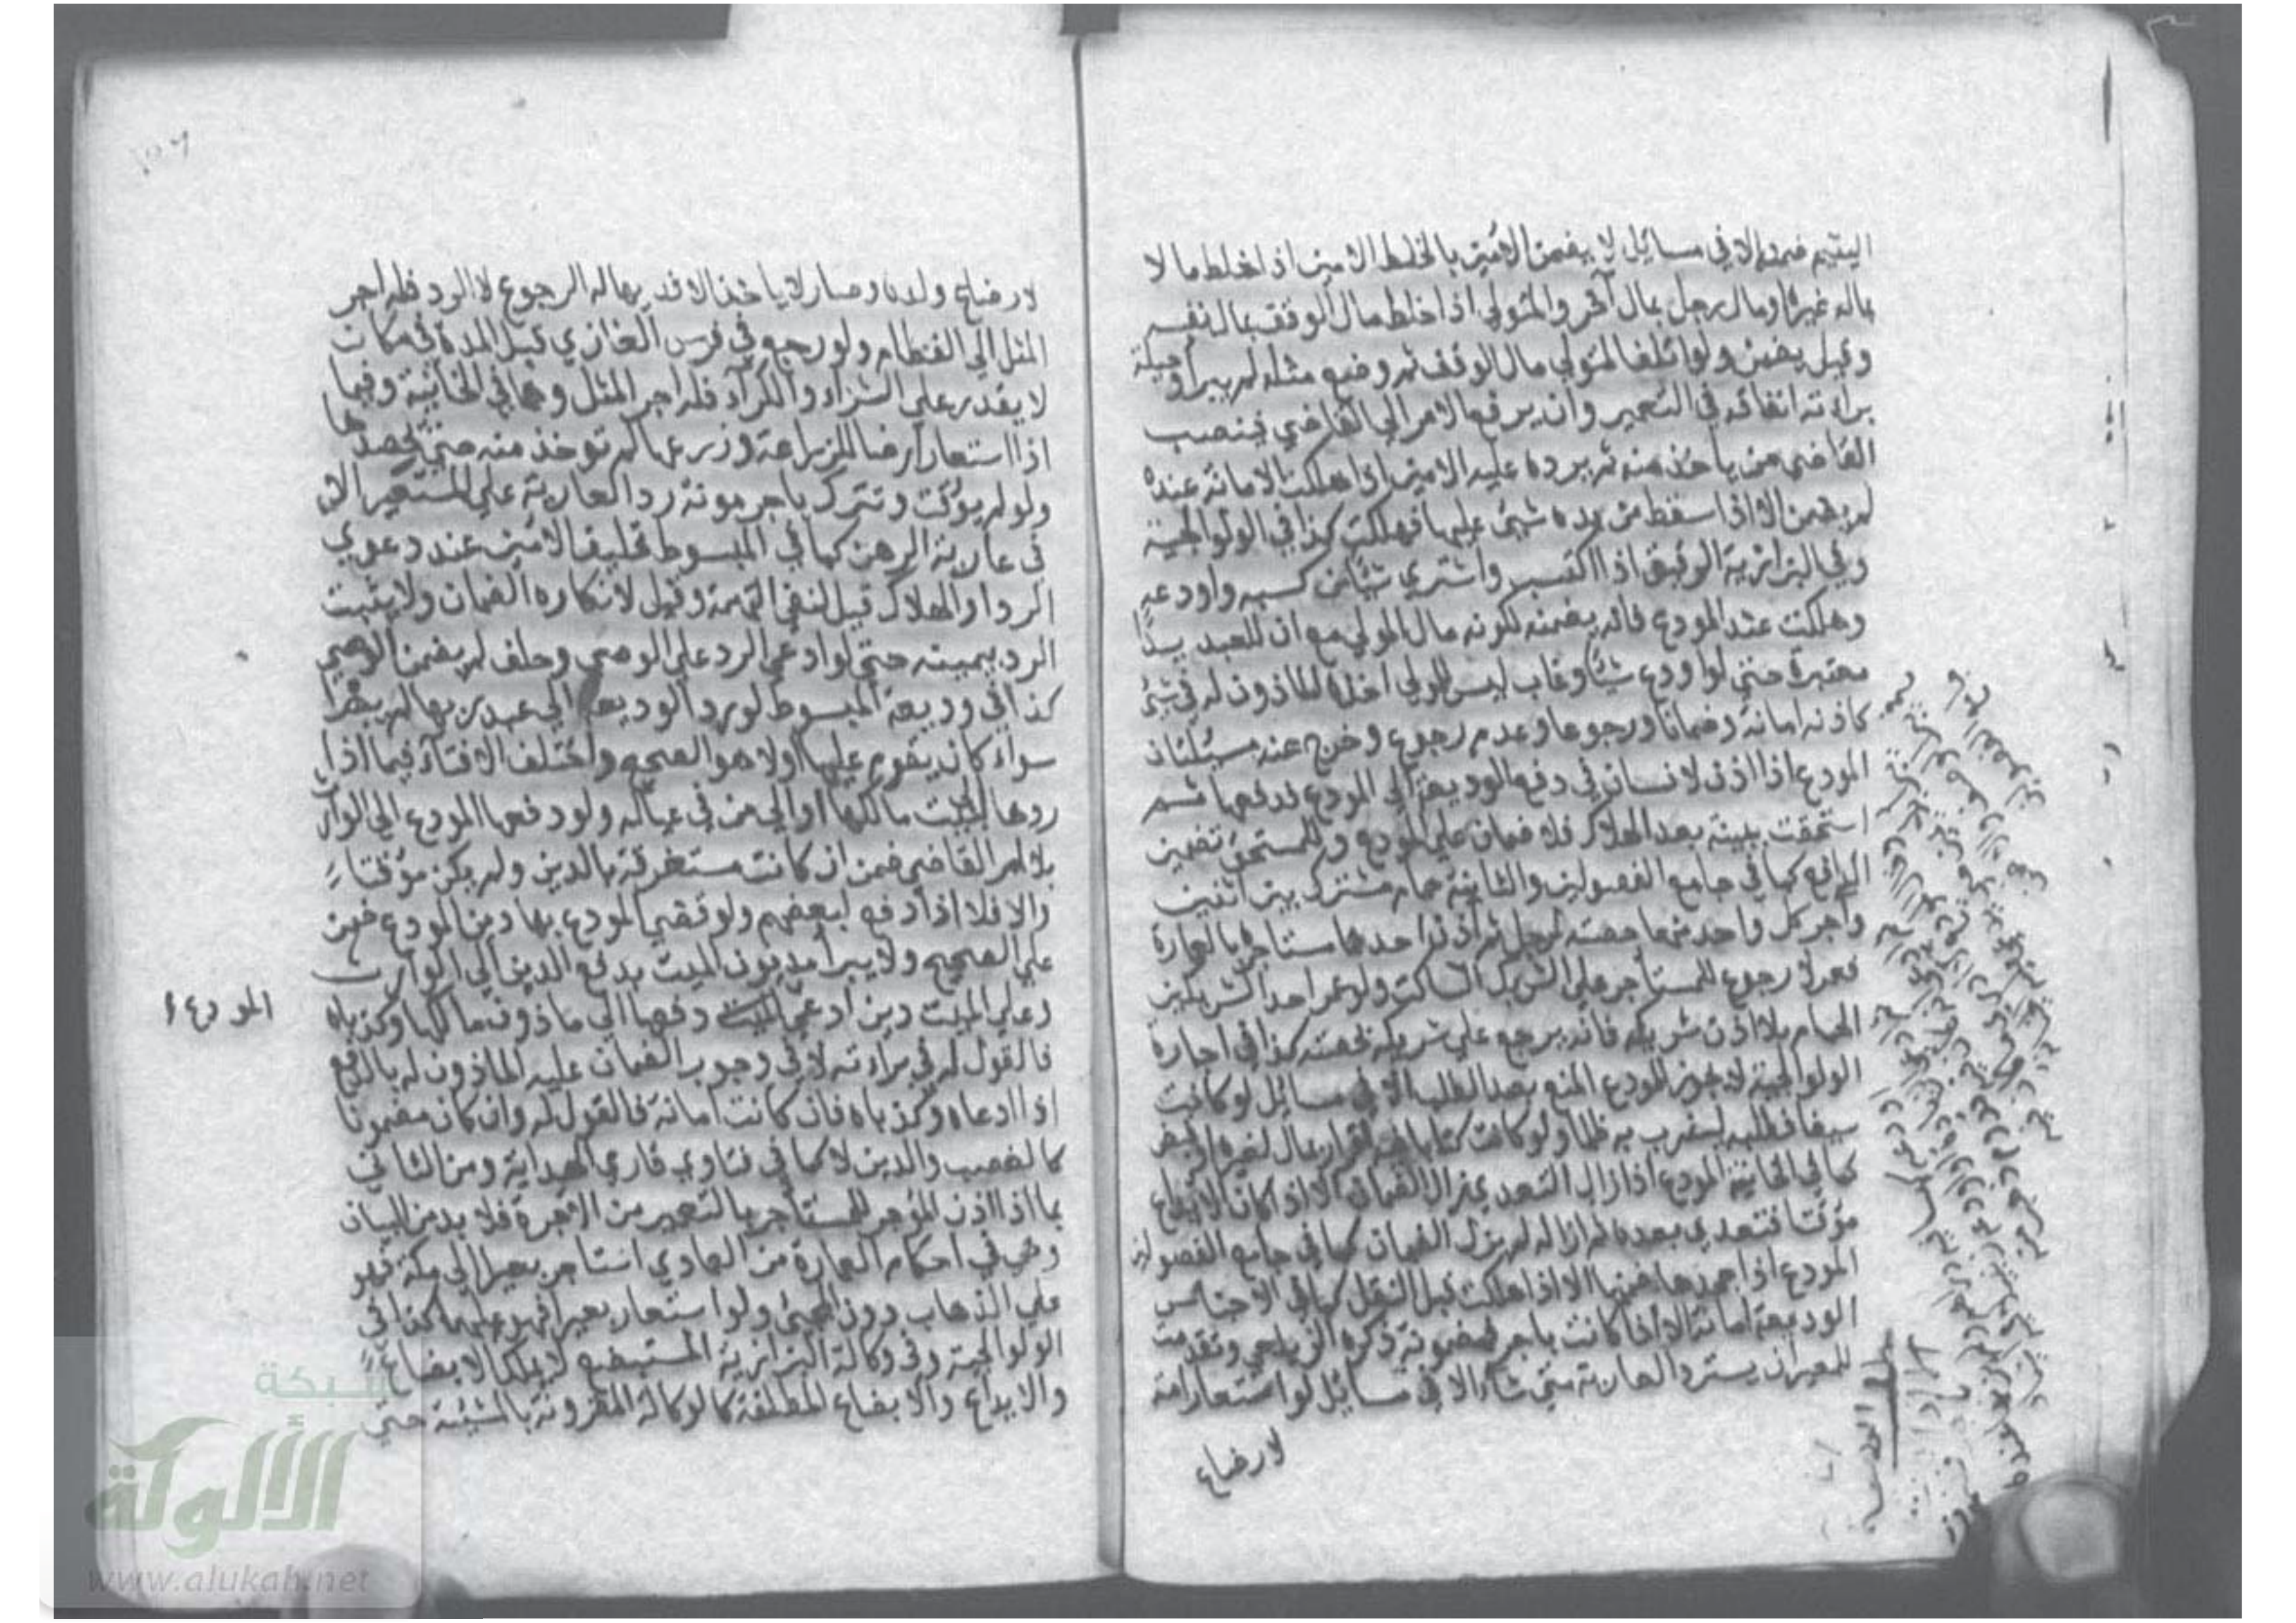 اليتيم ضمن الا في مسائل لا يضمن الامين بالخلط الامين اذا خلط مالا
بماله غيره او مال رجل بمال آخر والمتولي اذا خلط مال الوقف بمال نفسه
وقيل يضمن ولو اتلف المتولي مال الوقف ثم وضع مثله لم يبرا وحيلة
براءته انفاقه في التعمير وان يرفع الامر الي القاضي فينصب
القاضي من ياخذ منه ثم يرده عليه الامين اذا هلكت الامانة عنده
لم يضمن الا اذا سقط من يده شيئ عليها فهلكت كذا في الولوالجية
وفي البزازية الرقيق اذا اكتسب واشتري شيئا من كسبه واودعه
وهلكت عند المودع فانه يضمنه لكونه مال المولي مع ان للعبد يدا
معتبرة حتي لو اودع شيئا وغاب ليس للمولي اخذه الماذون له في شيئ
كاذنه امانة وضمانا ورجوعا وعدم رجوع وخرج عنه مسئلتان
المودع اذا اذن لانسان في دفع الوديعة الي المودع فدفعها ثم
استحقت ببينة بعد الهلاك فلا ضمان علي المودع وللمستحق تضمين
الدافع كما في جامع الفصولين والثانية حمام مشترك بين اثنين
واجر كل واحد منهما حصته لرجل ثم اذن احدهما مستاجره بالعمارة
فعمر لا رجوع للمستاجر علي الشريك الساكت ولو عمر احد الشريكين
الحمام بلا اذن شريكه فانه يرجع علي شريكه بحصته كذا في اجارة
الولوالجية لا يجوز للمودع المنع بعد الطلب الا في مسائل لو كانت
سيفا فطلبه ليضرب به ظلما ولو كانت كتابا فيه اقرار بمال لغيره او قبض
كما في الخانية المودع اذا زال التعدي زال الضمان الا اذا كان الايداع
مؤقتا فتعدي بعده ثم ازاله لم يزل الضمان كما في جامع الفصولين
المودع اذا جحدها ضمنها الا اذا هلكت قبل النقل كما في الاجناس
الوديعة امانة الا اذا كانت باجر فمضمونة ذكره الزيلعي وتقدمت
للمعير ان يسترد العارية متي شاء الا في مسائل لو استعار امة
لارضاع
لارضاع ولده وصار لا ياخذ الا ثديها له الرجوع لا الرد فله اجر
المثل الي الفطام ولو رجع في فرس الغازي قبل المدة في مكان
لا يقدر علي الشراء والكراء فله اجر المثل وهما في الخانية وفيما
اذا استعار ارضا للزراعة وزرعها لم توخذ منه حتي يحصدها
ولو لم يؤقت وتترك باجر مونة رد العارية علي المستعير الا
في عارية الرهن كما في المبسوط تحليف الامين عند دعوي
الرد او الهلاك قيل لنفي التهمة وقيل لانكاره الضمان ولا يثبت
الرد بيمينه حتي لو ادعي الرد علي الوصي وحلف لم يضمن الوصي
كذا في وديعة المبسوط لو رد الوديعة الي عبد ربها لم يبرا
سواء كان يقوم عليها اولا هو الصحيح واختلف الافتاء فيما اذا
ردها الي بيت مالكها او الي من في عياله ولو دفعها المودع الي الوارث
بلا امر القاضي ضمن ان كانت مستغرقة بالدين ولم يكن مؤتمنا
والا فلا اذا دفع لبعضهم ولو قضي المودع بها دين المودع ضمن
علي الصحيح ولا يبرا مديون الميت بدفع الدين الي الوارث
وعلي الميت دين ادعي دفعها الي ماذون مالكها وكذباه
المودع
فالقول له في براءته لا في وجوب الضمان عليه الماذون له بالدفع
اذا ادعاه وكذباه فان كانت امانة فالقول له وان كان مضمونا
كالغصب والدين لا كما في فتاوي قاري الهداية ومن الثاني
ما اذا اذن المؤجر للمستاجر بالتعمير من الاجرة فلا بد من البيان
وهي في احكام العمارة من العمادي استاجر بعيرا الي مكة فهو
علي الذهاب دون المجيئ ولو استعار بعيرا فهو عليهما كذا في
الولوالجية وفي وكالة البزازية المستبضع لا يملك الابضاع
والايداع والابضاع المطلقة كالوكالة المقرونة بالمشيئة حتي
شبكة
الألوكة
www.alukah.net